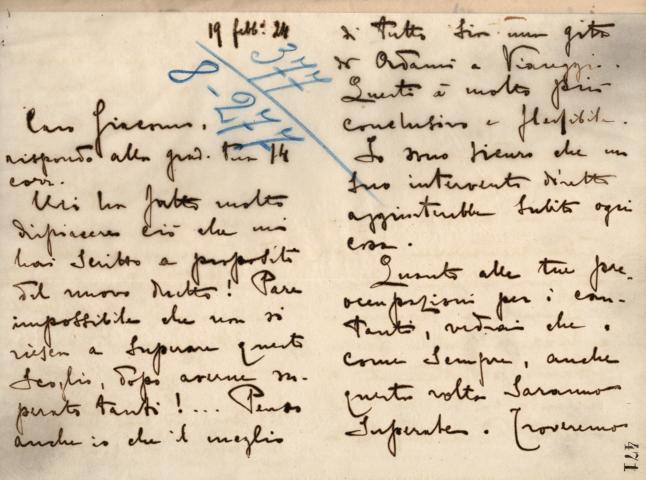 19 febb. 24
377
8-277
Caro Giacomo,
rispondo alla grad. tua 14
corr.
Mi ha fatto molto
dispiacere ciò che mi
hai scritto a proposito
del nuovo duetto! Pare
impossibile che non si
riesca a superare questo
scoglio, dopo averne su-
perato tanti!... Penso
anche io che il meglio
di tutto sia una gita
di Adami a Viareggio.
Questo è molto più
conclusivo e flessibile.
Io sono sicuro che un
suo intervento diretto
aggiusterebbe subito ogni
cosa.
Quanto alle tue pre-
occupazioni per i can-
tanti, vedrai che,
come sempre, anche
questa volta saranno
superate. Troveremo
471